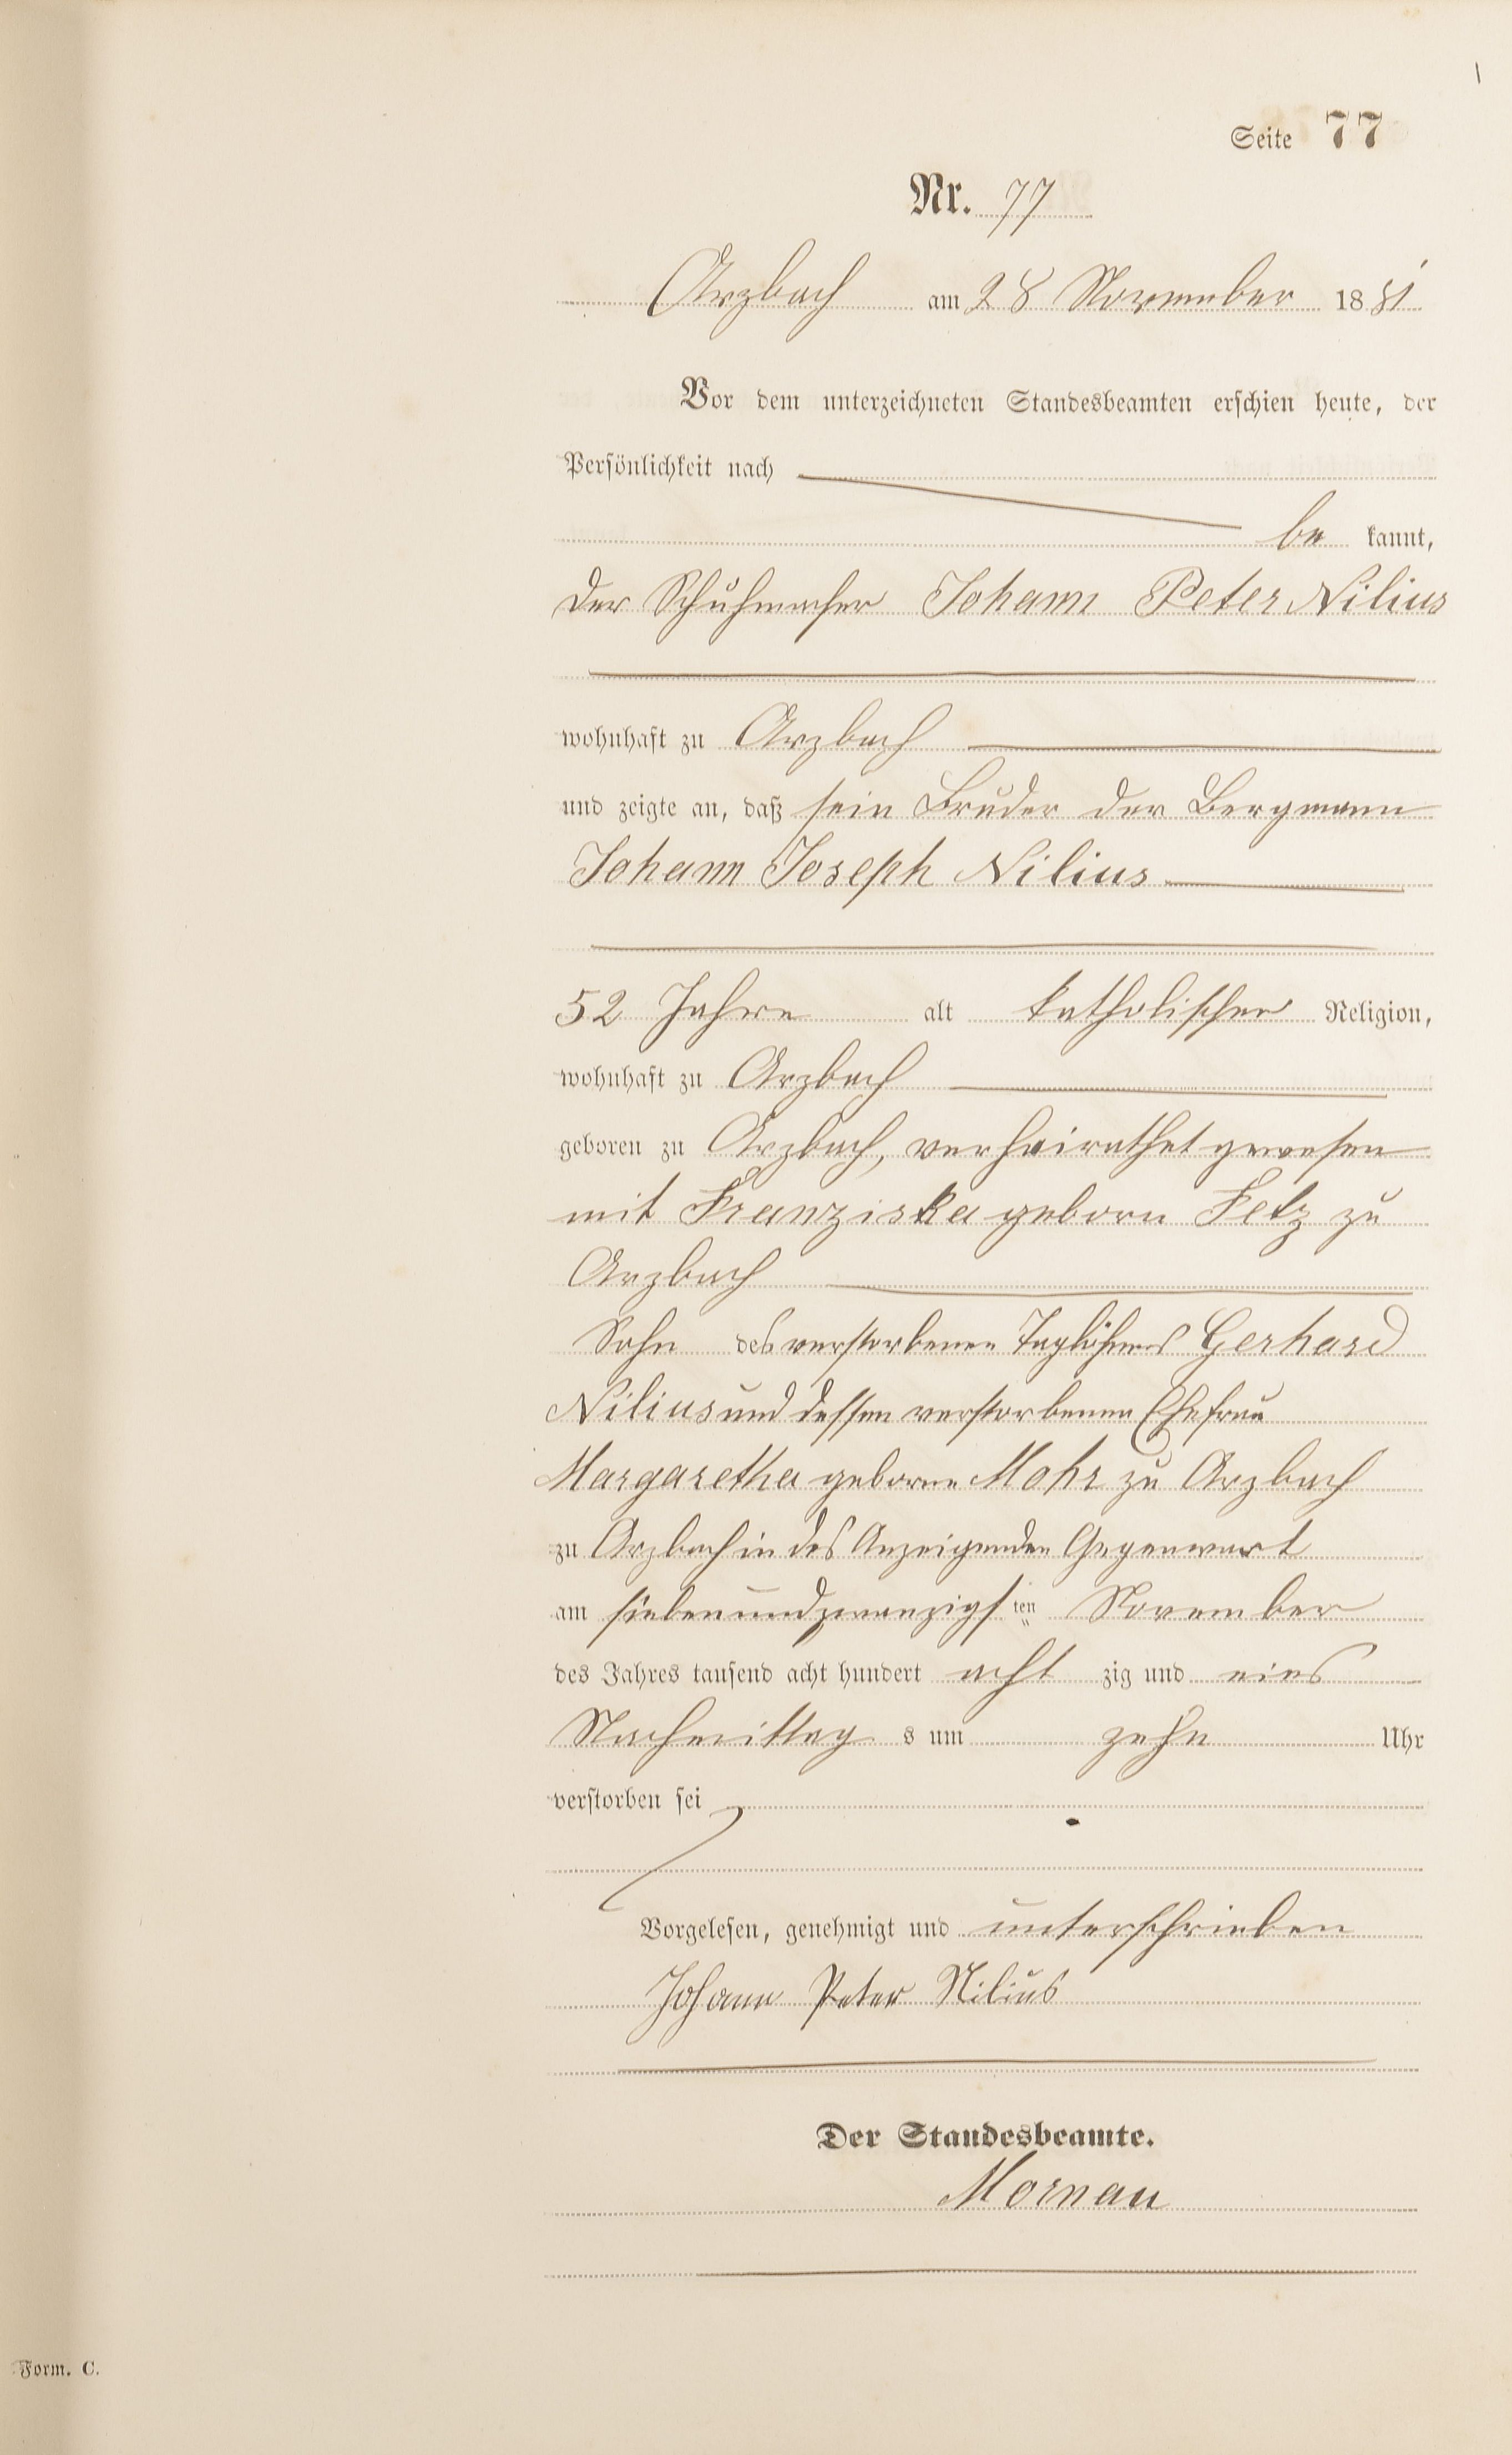 Seite 77
Nr. 77
Arzbach am 28 November 1881
Vor dem unterzeichneten Standesbeamten erschien heute, der
Persönlichkeit nach
be kannt,
der Schuhmacher Johann Peter Nilius
wohnhaft zu Arzbach
und zeigte an, daß sein Bruder der Bergmann
Johann Joseph Nilius
52 Jahre alt katholischer Religion,
wohnhaft zu Arzbach
geboren zu Arzbach, verheirathet gewesen
mit Franziska geborn Felz zu
Arzbach
Sohn des verstorbenen Taglöhners Gerhard
Nilius und dessen verstorbenen Ehefrau
Margaretha geborne Mohr zu Arzbach
zu Arzbach in des Anzeigenden Gegenwart
am siebenundzwanzigsten November
des Jahres tausend acht hundert acht zig und eins
Nachmittag s um zehn Uhr
verstorben sei
Vorgelesen, genehmigt und unterschrieben
Johann Peter Nilius
Der Standesbeamte.
Mornau
Form. C.